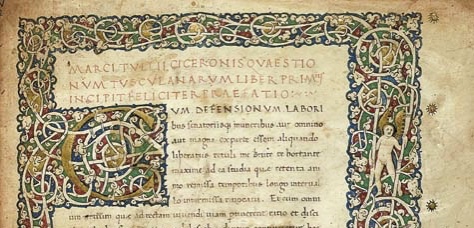 MARCI TULLII CICERONIS QVAESTIO
NVM TVSCVLANARVM LIBER PRIMVS
INCIPIT FELICITER PRAEFATIO
CVM DEFENSIONVM LABORI
bus senatoriisque muneribus aut omnino
aut magna ex parte essem aliquando
liberatus retuli me brute te hortante
maxime ad ea studia quae retenta ani
mo remissa temporibus longo interual
lo intermissa reuocaui. Et cum omni
um artium quae ad rectam uiuendi uiam